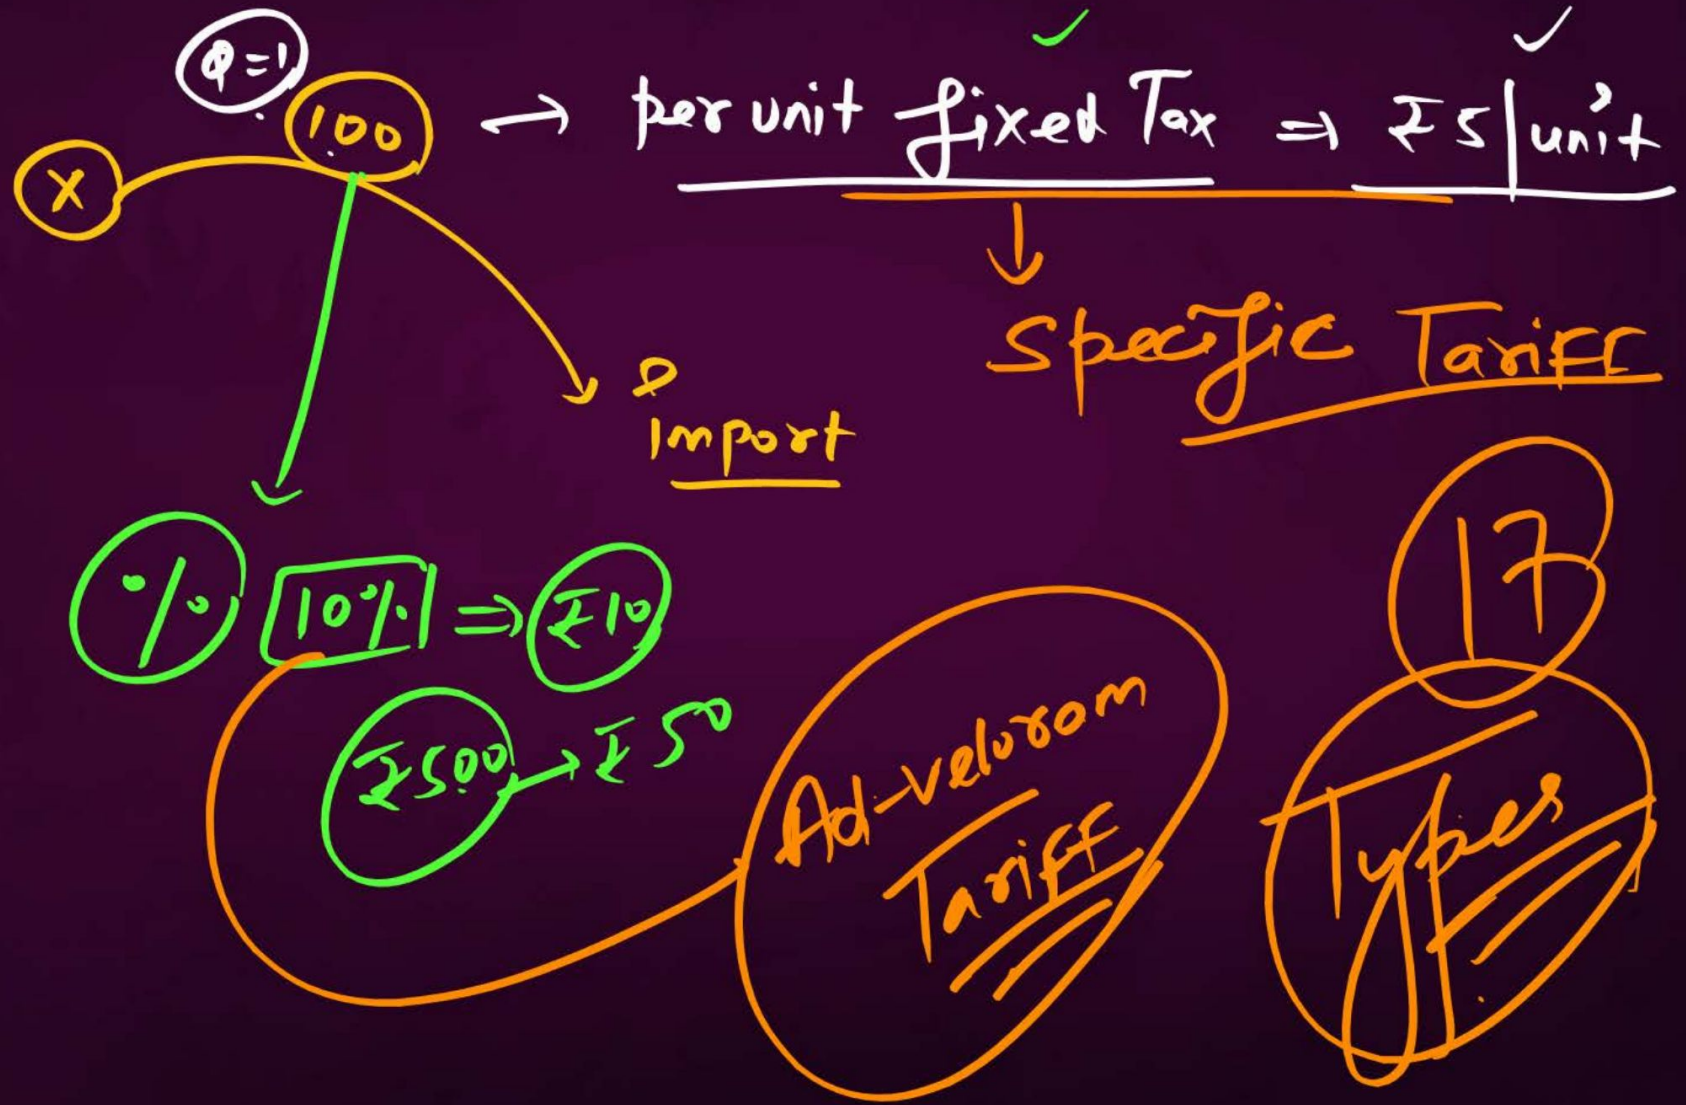 Q=1
100 → per unit fixed Tax ⇒ ₹5/unit
X
Specific Tariff
Import
17
% 10% ⇒ ₹10
₹500 → ₹50
Ad-velorom
Tariff
Types